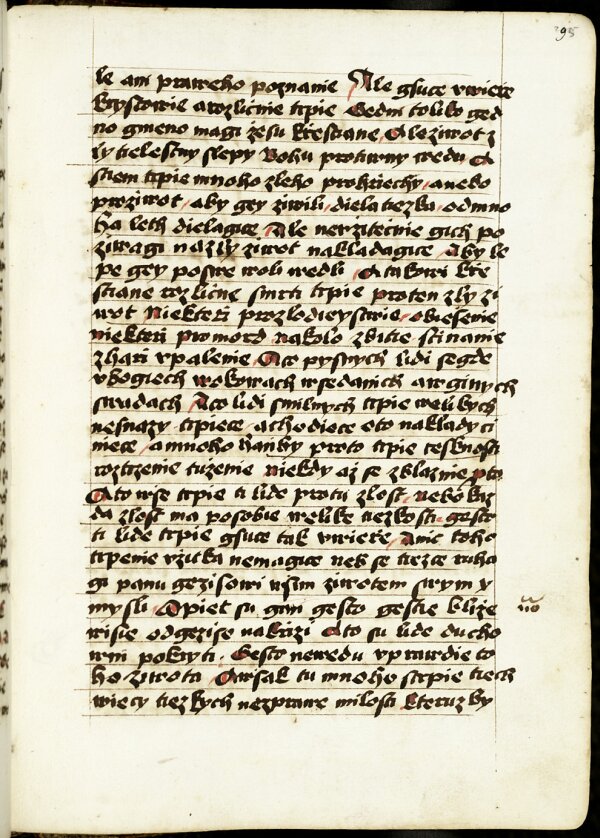 295
le ani praweho poznanie Ale gsuce vwierze
krystowie arozlicnie trpie Gedni toliko ged
no gmeno magi zesu krzestiane Ale ziwot z
ly tielestny slepy Bohu protiwny wedu A
stiem trpie mnoho zleho prohrziechy anebo
proziwot aby gey ziwili dielatiezka odmno
ha leth dielagice Ale nevzitecnie gich po
ziwagi nazly ziwot nakladagice Aby le
pe gey poswe woli wedli A takowi krze
stiane rozlicne smrti trpie proten zly zi
wot Niekterzi prozlodieystwie obiesenie
niekterzi promord nakolo zbitie stinanie
zharzi vpalenie A co pysnych lidi segde
vbogiech wokowach wsedanich awginych
swadach A co lidi smilnych trpie welikych
nesnazy trpiece achodiece oto naklady ci
niece amnoho hanby proto trpie tesknosti
roztrzenie tuzenie niekdy az se zblaznie pto
A to wse trpie ti lide proti zlost nebo kaz
da zlost ma posobie welike tiezkosti gesto
ti lide trpie gsuce tak vwierze Anic toho
trpenie vzitka nemagice nez se tiezce ruha
gi panu gezisowi wssim ziwotem swym y
mysli Opiet su gini gesto gestie blize
wisie odgezise nakrzizi A to su lide ducho
wni pokryti Gesto newedu vprawdie to
ho ziwota Awsak tu mnoho strpie tiech
wiecy tiezkych nezprawe milosti kteruz by